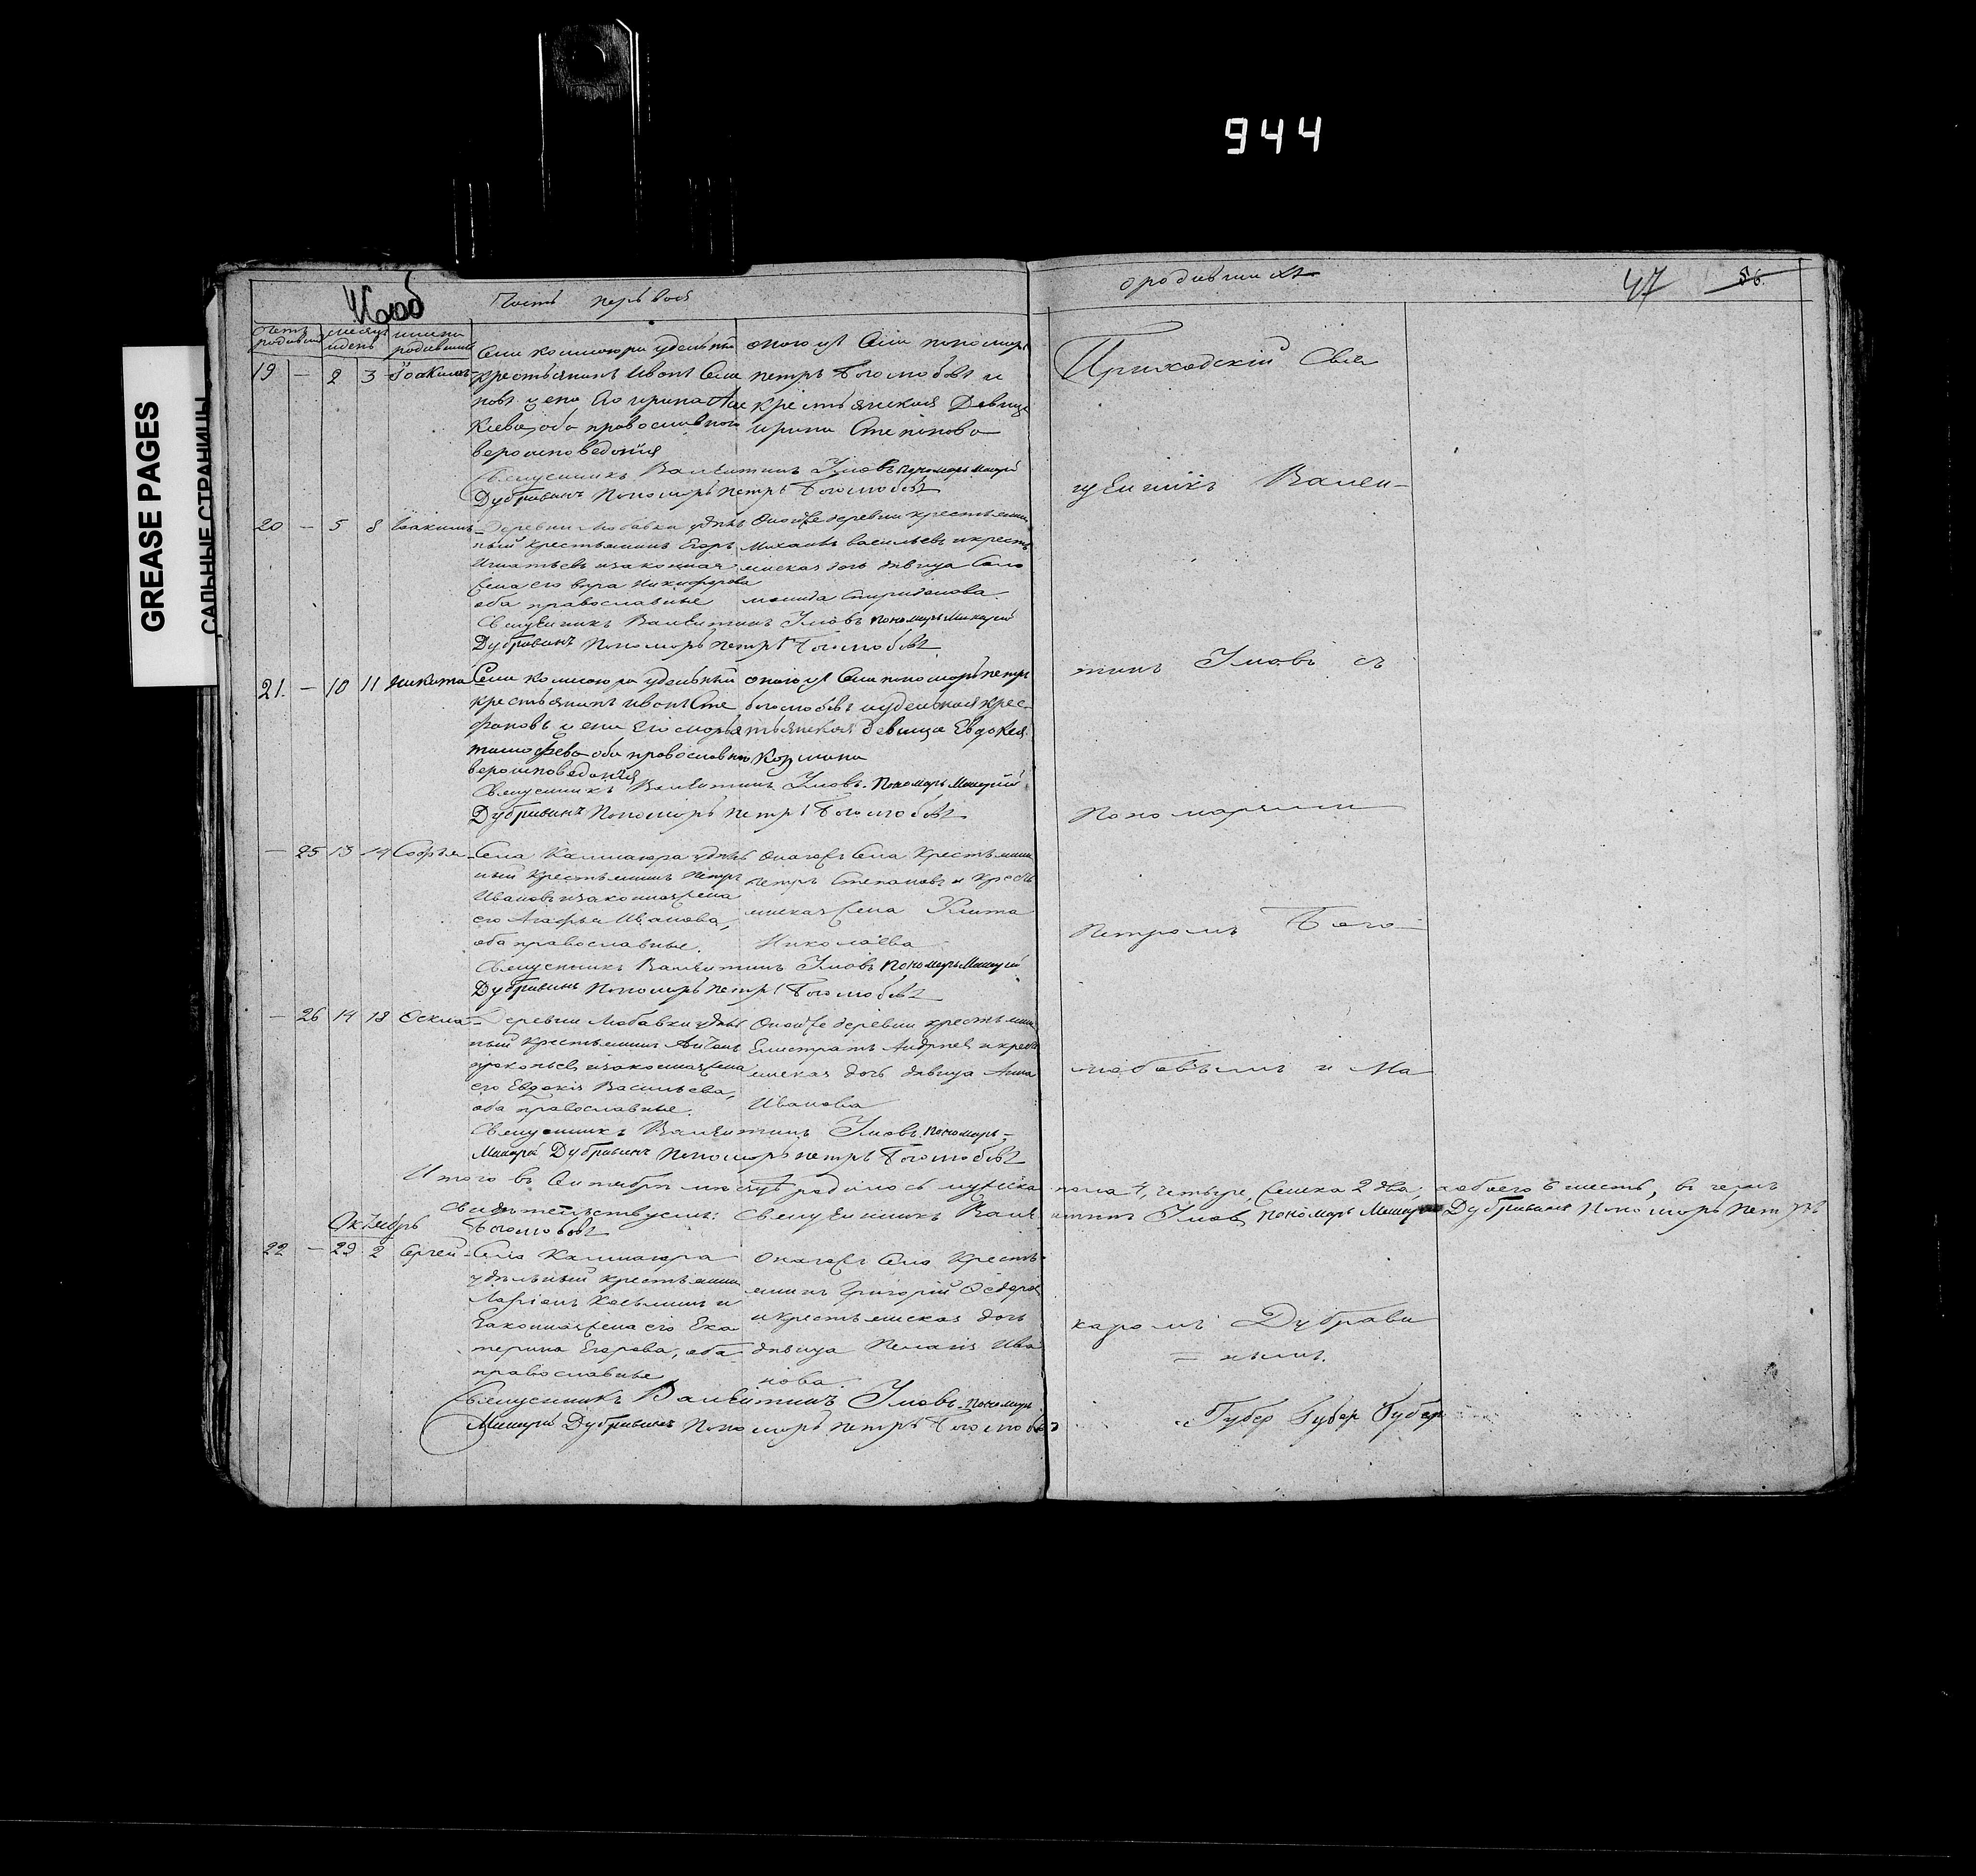 944
GREASE PAGES
САЛЬНЫЕ СТРАНИЦЫ
Часть первая
о родившихся
47 56.
счетъ родивших
месяцъ и день
имена родившихъ
19 — 2 3 Іоакимъ
Села удельный
крестьянинъ Иванъ Семе
новъ жена Его ирина Але
ксеева, оба православнаго
вероисповедания
оногожъ Села пономарь
петръ Боголюбовъ и
крестьянская Девица
ирина Степанова
Священникъ Валентинъ Умовъ пономарь Макарій
Дубравинъ Пономарь петръ Боголюбовъ
20 — 5 8 Іоакимъ
Деревни Любавки удѣль
ный крестьянинъ Егоръ
Игнатьевъ и законная
жена его вера Никифорова
оба православные
Оной же деревни крестьянинъ
Михаилъ васильевъ и кресть
янская дочь дѣвица Соло
монида Спиридонова.
Священникъ Валентинъ Умовъ пономарь Макарій
Дубравинъ Пономарь петръ Боголюбовъ
21. — 10 11 Никита
Села удельный
крестьянинъ иванъ Сте
фановъ жена Его марья
тимофеева оба православнаго
вероисповедания
оногожъ Села пономарь петръ
боголюбовъ и удельная крес
тьянская Девица Евдокея
Козмина
Священникъ Валентинъ Умовъ. Пономарь Макарій
Дубравинъ Пономарь петръ Боголюбовъ
— 25 13 14 Софья
Села удѣль
ный Крестьянинъ Петръ
Ивановъ и законная жена
его Агафья Иванова,
оба православные.
Онагожъ Села Крестьянинъ
петръ Степановъ и Кресть
янская жена Улита
Николаева
Священникъ Валентинъ Умовъ пономарь Макарій
Дубравинъ Пономарь петръ Боголюбовъ
— 26 14 18
Деревни Любавки удѣль
ный Крестьянинъ
прокопьевъ и законная жена
его Евдокія Васильева,
оба православные.
Оной же деревни крестьянинъ
Елистратъ Андреевъ и крест
янская дочь дѣвица Анна
Иванова
Священникъ Валентинъ Умовъ. пономарь
Макарій Дубравинъ Пономарь петръ Боголюбовъ
Итого въ Сентябрѣ месяцѣ родилось мужеска пола 4, четыре, женска 2 два, а обоего 6 шесть, въ чемъ
Свидѣтельствуемъ: Священникъ Валентинъ Умовъ пономарь Макарій Дубравинъ Пономарь петръ
Боголюбовъ
Октябрь
22 — 29 2 Сергей
Села
удѣльный крестьянинъ
Ларіонъ Косьминъ и
Законная жена его Ека
терина Егорова, оба
православные
Онагожъ Села Кресть
янинъ Григорій Ѳедоров
и крестьянская дочь
дѣвица Пелагія Ива
нова.
Священникъ Валентинъ Умовъ. пономарь
Макарій Дубравинъ Пономарь петръ Боголюбовъ
Приходскій Свя
щенникъ Вален-
тинъ Умовъ съ
Пономарями
Петромъ Бого-
любовымъ и Ма
каромъ Дубрави
= нымъ.